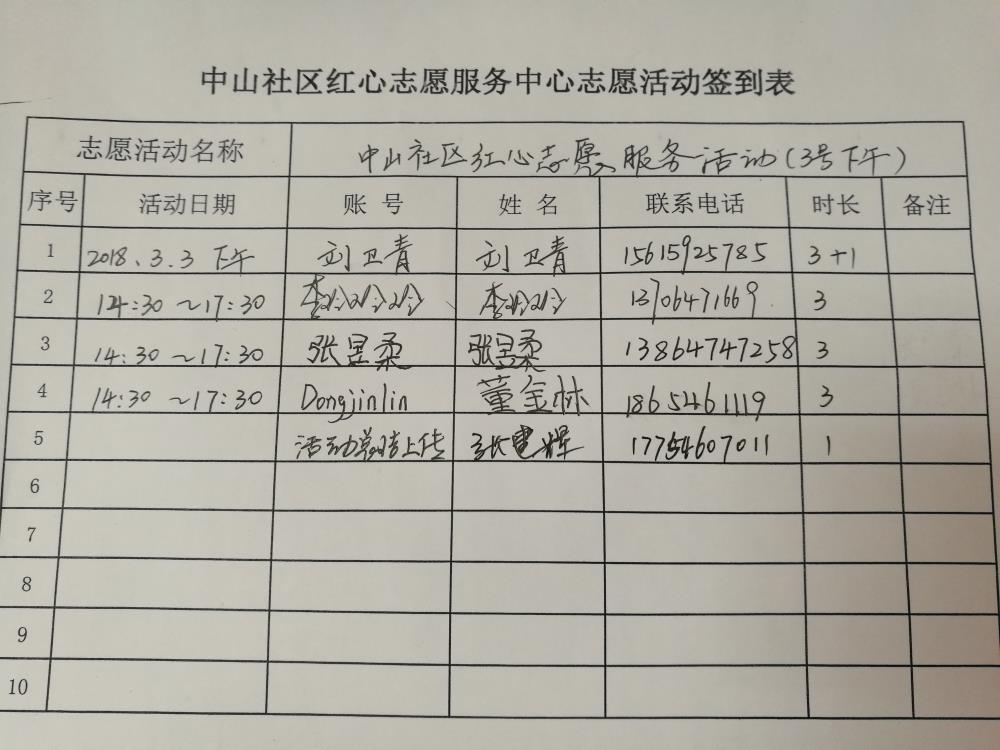 中山社区红心志愿服务中心志愿活动签到表
志愿活动名称 中山社区红心志愿服务活动(3号下午)
序号 活动日期 账号 姓名 联系电话 时长 备注
1 2018.3.3 下午 刘卫青 刘卫青 15615925785 3+1
2 14:30~17:30 李 李 13706471669 3
3 14:30~17:30 张昱柔 张昱柔 13864747258 3
4 14:30~17:30 Dongjinlin 董金林 18654461119 3
5 活动总结上传 张 17754607011 1
6
7
8
9
10